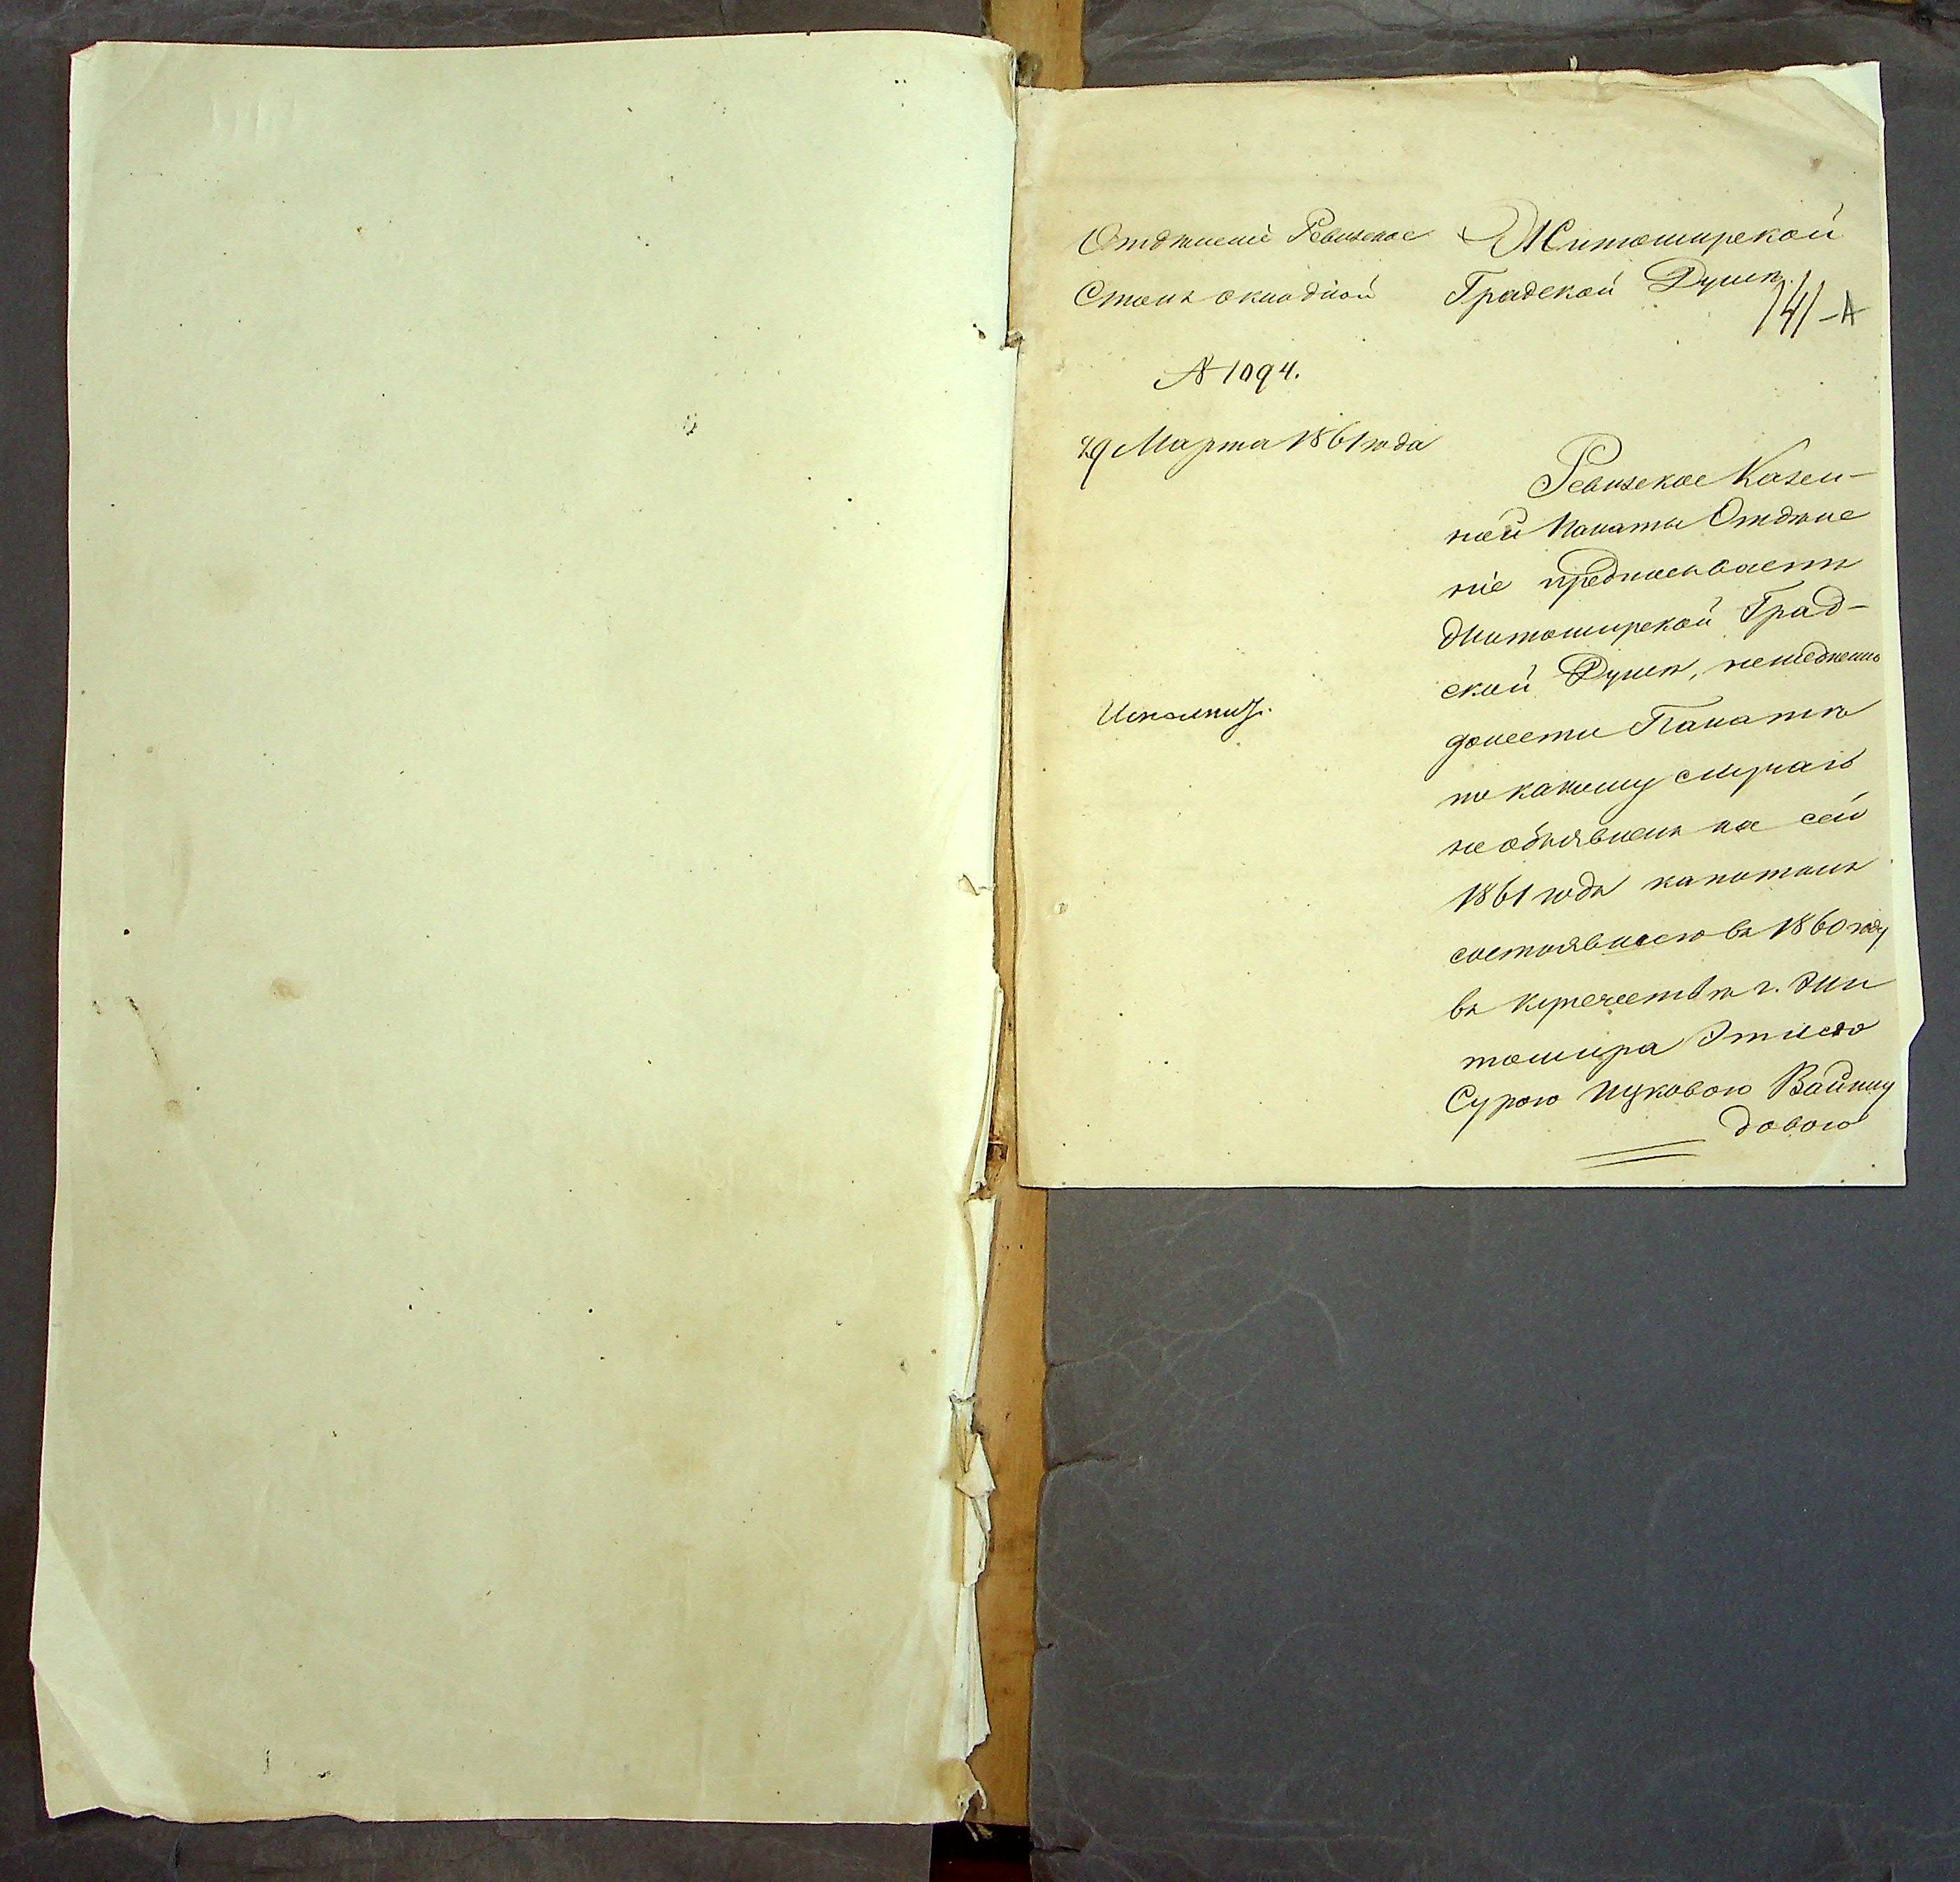 Отдѣленіе Ревизское
Столъ окладной
№ 1094.
29 Марта 1861 года
Житомирской
Градской Думѣ
141-А
Ревизское Казен-
ной Палаты Отдѣле
ніе предписываетъ
Житомирской Град-
ской Думѣ, немедленно
донести Палатѣ
по какому случаю
не объявленъ на сей
1861 годъ капиталъ
состоявшею въ 1860 году
въ купечествѣ г. Жи
томира
Сурою Ицковою Вайншу
довою